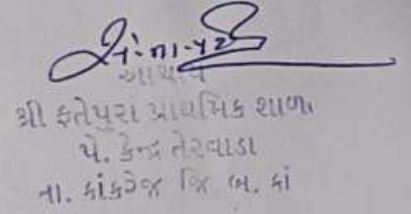 આચાર્ય
શ્રી ફતેપુરા પ્રાથમિક શાળા
પે. કેન્દ્ર તેરવાડા
તા. કાંકરેજ જિ. બ. કાં